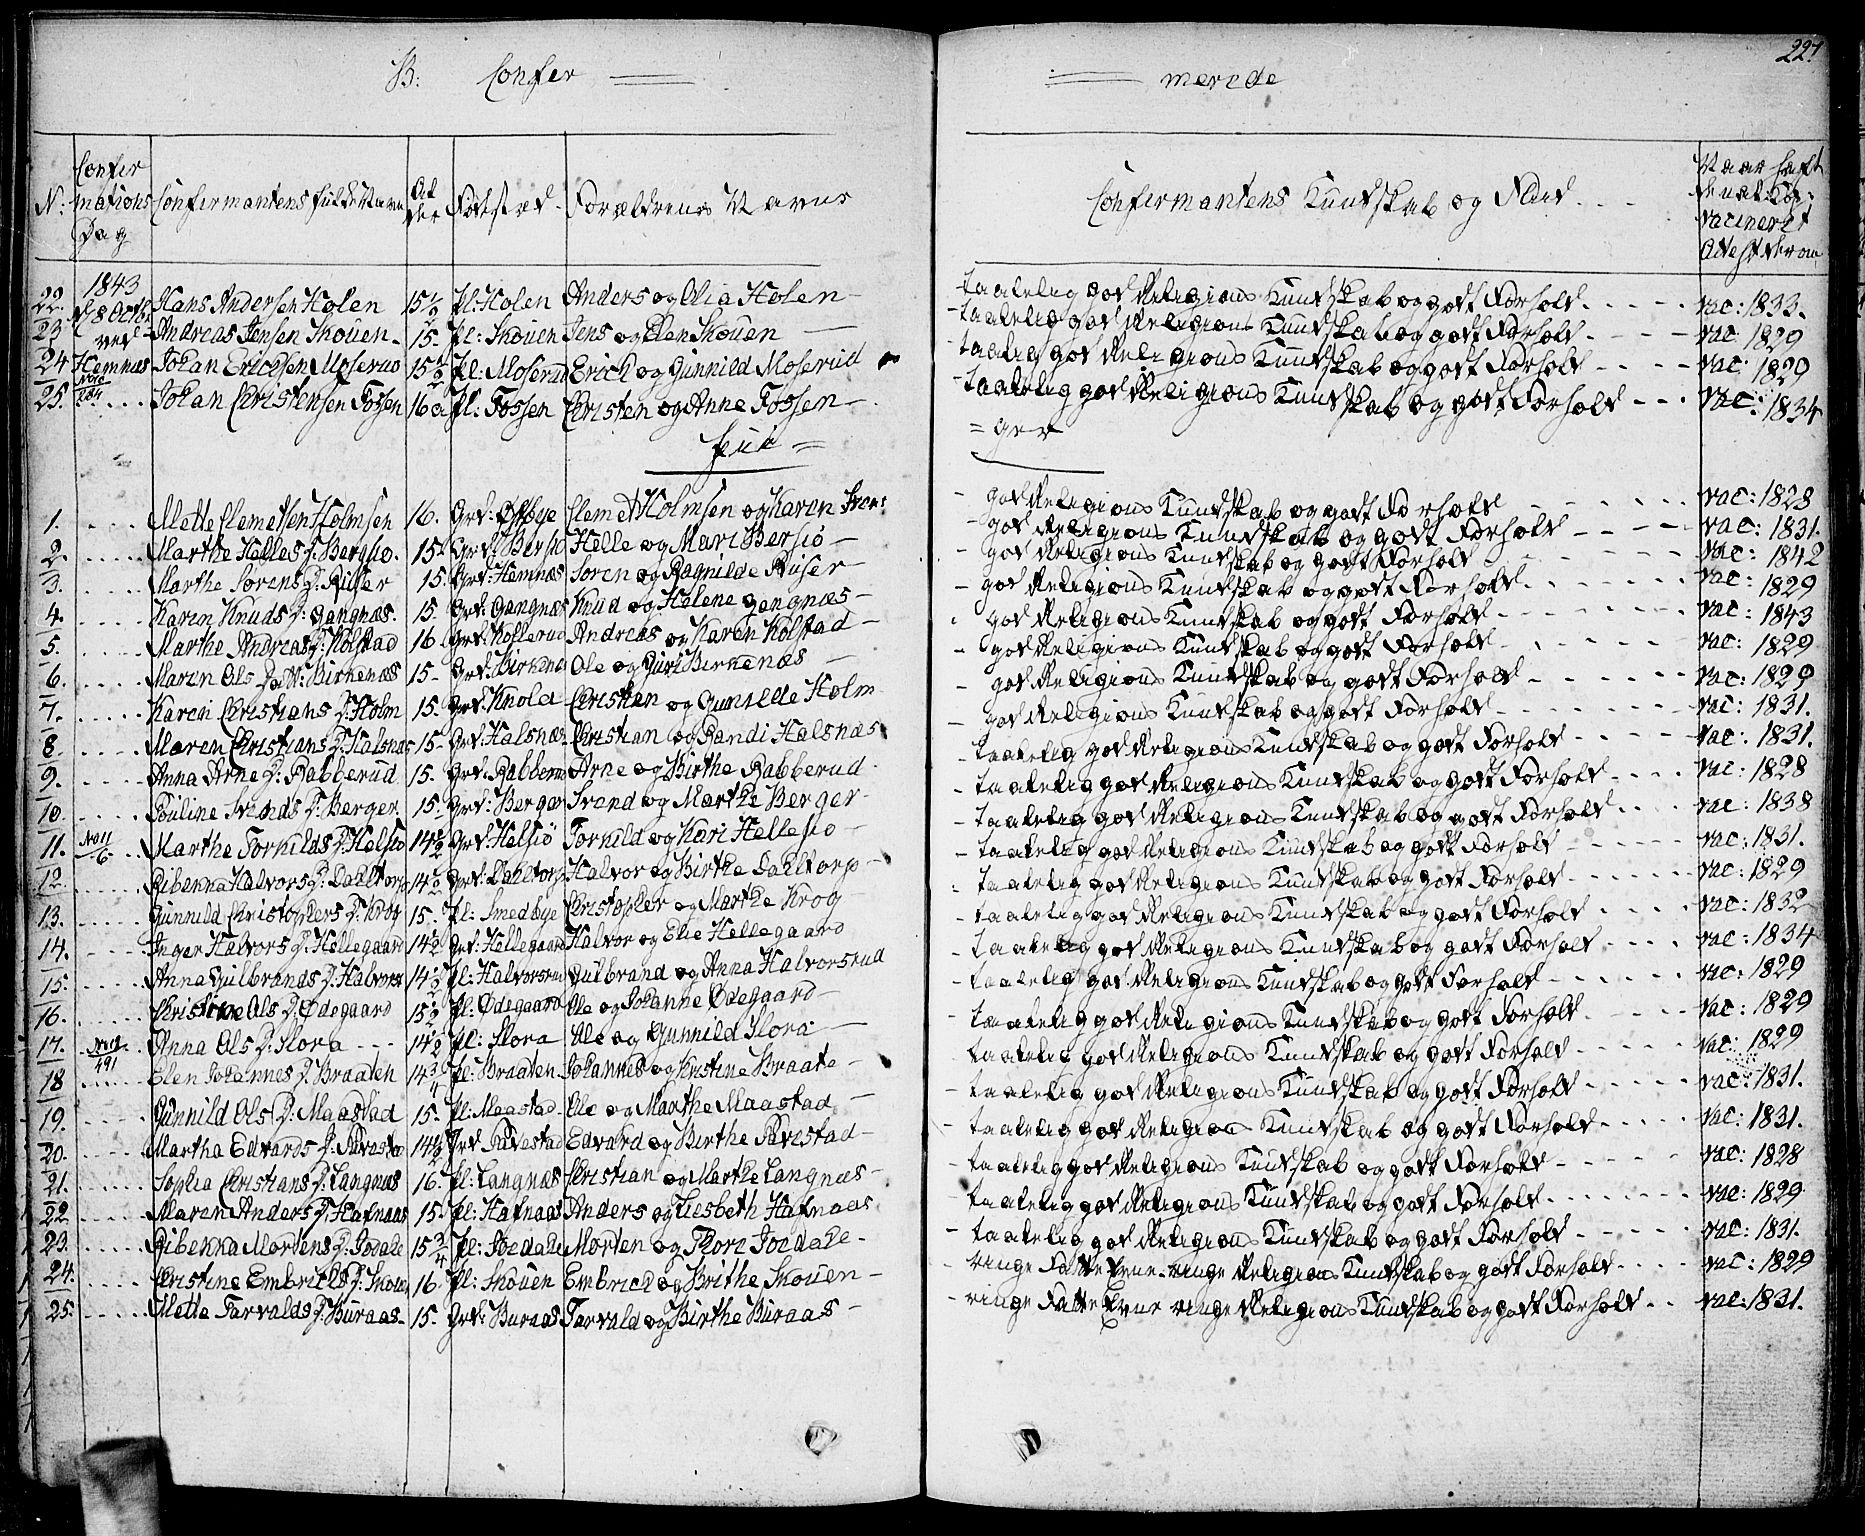 B: Confer
merede
227
N: Confermations Dag Confermantens fulde Navn Alder Fødested Forældrenes Navne Confermantens Kundskab og Flid Naar haft de nat: Kop: vacineret Attest derom
22. 1843 d 8 Octb. Hans Andersen Holen 15 1/2 Pl: Holen Anders og Olia Holen taalelig god Religions Kundskab og godt Forhold vac: 1833.
23 ved Andreas Jensen Skouen 15. Pl: Skouen Jens og Elen Skouen taalelig god Religions Kundskab og godt Forhold vac 1829
24 Hemnæs Johan Erichsen Moserud 15 1/2 Pl: Moserud Erich og Gunnild Moserud taalelig god Religions Kundskab og godt Forhold vac: 1829
25. Johan Christensen Fossen 16 Pl: Fossen Christen og Anne Fossen taalelig god Religions Kundskab og godt Forhold vac: 1834
= ger
1. Mette Clemetsen Holmsen 16. Grd: Østbye Clemet Holmsen og Karen god Religions Kundskab og godt Forhold vac: 1828
2. Marthe Helles D: Bergsiø. 15 Grd: Bersiø Helle og Mari Bersiø god Religions Kundskab og godt Forhold vac: 1831.
3. Marthe Sørens D: Riiser 15. Grd: Hemnæs Søren og Ragnilde Riiser god Religions Kundskab og godt Forhold vac: 1842
4. Karen Knuds D: Gangnæs. 15 Grd: Gangnæs Knud og Helene Gangnæs god Religions Kundskab og godt Forhold vac: 1829
5. Marthe Andreas D: Kolstad 16 Grd: Kollerud Andreas og Karen Kolstad god Religions Kundskab og godt Forhold vac: 1843
6. Maren Ols Datt: Birkenæs 15 Grd: Birkenæ Ole og Guri Birkenæs god Religions Kundskab og godt Forhold vac: 1829
7. Karen Christians D: Holm 15. Grd: Knold Christian og Gunilde Holm god Religions Kundskab og godt Forhold vac: 1829
8. Maren Christians D: Halsnæs 15 Grd: Halsnæs Christian og Randi Halsnæs god Religions Kundskab og godt Forhold vac: 1831.
9. Anna Arne D: Rabberud 15. Grd: Rabberud Arne og Birthe Rabberud taalelig god Religions Kundskab og godt Forhold vac: 1831.
10. Pouline Svends D: Berger 15. Grd: Berger Svend og Marthe Berger taalelig god Religions Kundskab og godt Forhold vac: 1828
11. Marthe Torkilds D: Helsiø 14 1/2 Grd: Helsiø Torkild og Kari Hellesiø taalelig god Religions Kundskab og godt Forhold vac: 1838
12. Ribekka Halvors D: Dahltorp 14 1/2 Grd: Dahltorp Halvor og Birthe Dahltorp taalelig god Religions Kundskab og godt Forhold vac: 1831.
13. Gunnild Christophers D: Krog 15. Pl: Smedbye Christopher og Marthe Krog taalelig god Religions Kundskab og godt Forhold vac: 1829
14. Inger Halvors D: Hellegaard 14 1/2 Grd: Hellegaard Halvor og Elie Hellegaard taalelig god Religions Kundskab og godt Forhold vac: 1832
15. Anna Gulbrands D: Halvors 14 1/2 Pl: Halvorsrud Gulbrand og Anna Halvorsrud taalelig god Religions Kundskab og godt Forhold vac: 1834
16. Christine Ols D: Ødegaard 15 1/2 Pl: Ødegaard Ole og Johanne Ødegaard taalelig god Religions Kundskab og godt Forhold vac: 1829
17. Anna Ols D: Flora 14 1/2 Pl: Flora Ole og Gunnild Flora taalelig god Religions Kundskab og godt Forhold vac: 1829
18 Elen Johannes D: Braaten 14 3/4 Pl: Braaten Johannes og Kirstine Braate taalelig god Religions Kundskab og godt Forhold vac: 1829
19. Gunnild Ols D: Maastad 15. Pl: Maastad Ole og Marthe Maastad taalelig god Religions Kundskab og godt Forhold vac: 1831.
20. Martha Edvards D: 14 1/2 Grd: Edvard og Birthe taalelig god Religions Kundskab og godt Forhold vac: 1831.
21. Sophia Christians D: Langnæs 16. Pl: Langnæs Christian og Marthe Langnæs taalelig god Religions Kundskab og godt Forhold vac: 1828
22. Maren Anders D: Hafnaas 15 Pl: Hafnaas Anders og Liesbeth Hafnaas taalelig god Religions Kundskab og godt Forhold vac: 1829
23. Ribekka Mortens D: 15 3/4 Pl: Morten og Thore taalelig god Religions Kundskab og godt Forhold vac: 1831.
24. Christine Embrichs D: Skoue 16 Pl: Skouen Embrich og Brithe Skouen ringe Fatte Evne ringe Religions Kundskab og godt Forhold vac: 1829
25. Mette Tarvalds D: Buraas 15. Grd: Buraas Tarvald og Birthe Buraas ringe Fatte Evne ringe Religions Kundskab og godt Forhold vac: 1831.